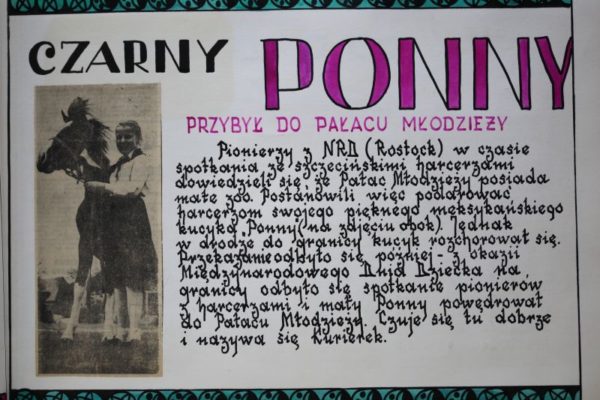 CZARNY PONNY
PRZYBYŁ DO PAŁACU MŁODZIEŻY
Pionierzy z NRD (Rostock) w czasie
spotkania ze szczecińskimi harcerzami
dowiedzieli się, że Pałac Młodzieży posiada
małe zoo. Postanowili więc podarować
harcerzom swojego pięknego meksykańskiego
kucyka „Ponny" (na zdjęciu obok). Jednak
w drodze do granicy kucyk rozchorował się.
Przekazanie odbyło się później - z okazji
Międzynarodowego Dnia Dziecka na
granicy odbyło się spotkanie pionierów
z harcerzami i mały Ponny powędrował
do Pałacu Młodzieży. Czuje się tu dobrze
i nazywa się Kurierek.